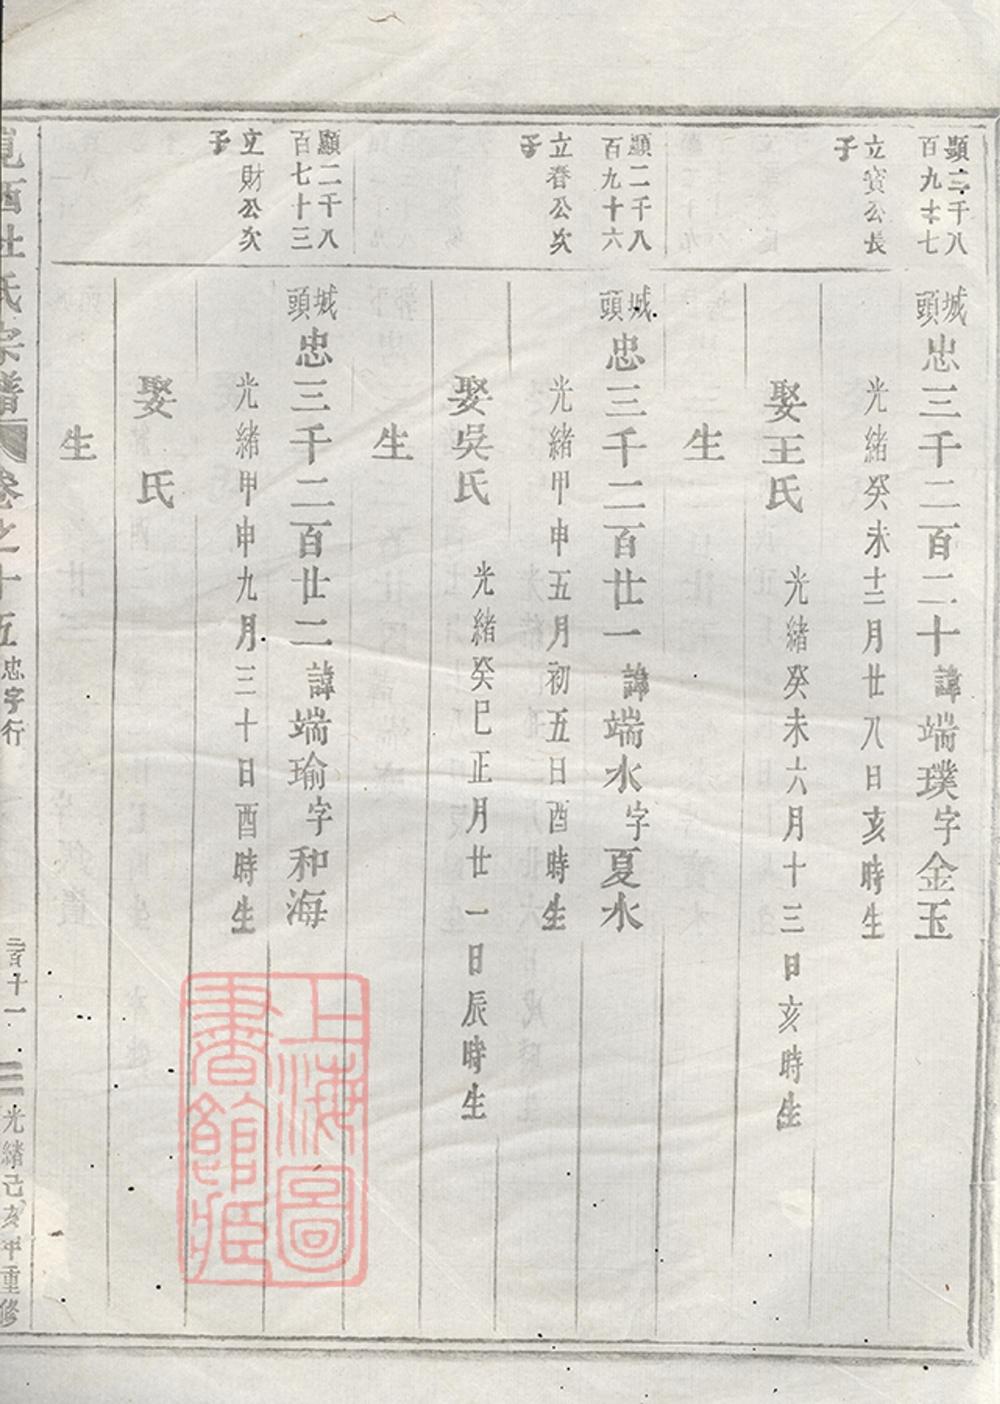 顯二千八
百九十七
立寶公長
子
城
頭
忠三千二百二十諱端璞字金玉
光緒癸未十二月廿八日亥時生
娶王氏 光緒癸未六月十三日亥時生
生
顯二千八
百九十六
立春公次
子
城
頭
忠三千二百廿一諱端水字夏水
光緒甲申五月初五日酉時生
娶吳氏 光緒癸巳正月廿一日辰時生
生
顯二千八
百七十三
立財公次
子
城
頭
忠三千二百廿二諱端瑜字和海
光緒甲申九月三十日酉時生
娶 氏
生
西杜氏宗譜 卷之十五 忠字行 二百十一 光緒己亥年重修
上海圖
書館藏